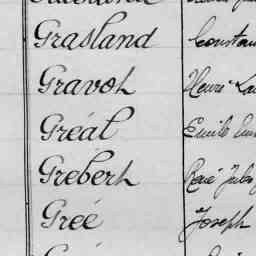 Grasland Constan
Gravot Henri
Gréal Emile
Grébert René Jules
Gréé Joseph